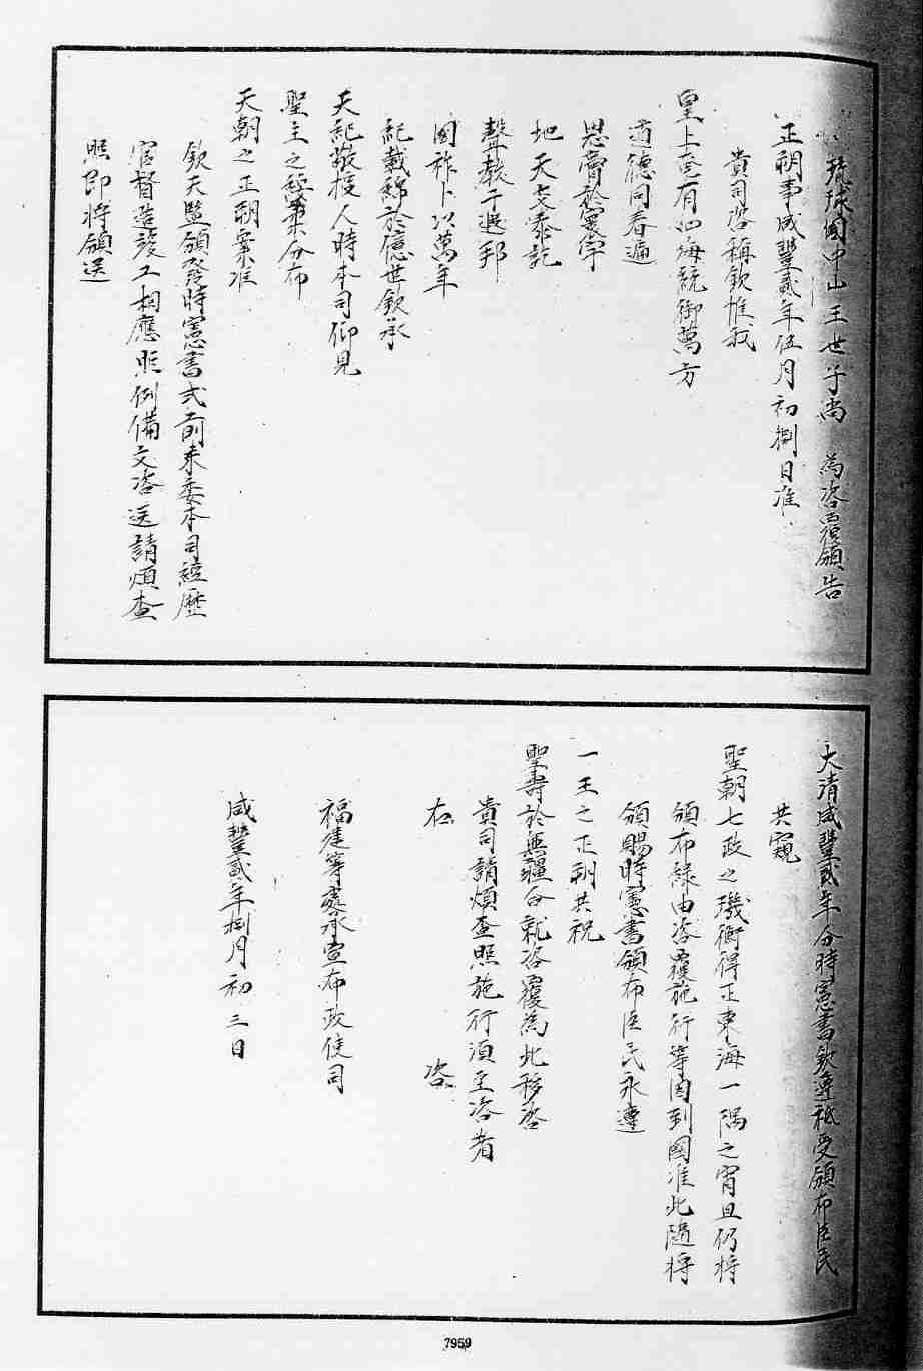 琉球國中山王世子尚　為咨覆頒告
正朔事咸豐貳年伍月初捌日准
貴司咨稱欽惟我
皇上奄有四海統御萬方
道德同春遍
恩膏於寰宇
地天交泰訖
聲教于遐邦
國祚卜以萬年
紀載綿於億世欽承
天紀敬授人時本司仰見
聖主之分布
天朝之正朔案准
欽天監頒發時憲書式前來委本司經歷
官督造竣工相應照例備文咨送請煩查
照即將頒送
大清咸豐貳年分時憲書欽遵祗受頒布臣民
共窺
聖朝七政之璣衡得正東海一隅之宵旦仍將
頒布緣由咨覆施行等因到國准此隨將
頒賜時憲書頒布臣民永遵
一王之正朔共祝
聖壽於無疆合就咨覆為此移咨
貴司請煩查照施行須至咨者
右　咨
福建等處承宣布政使司
咸豐貳年捌月初三日
7959